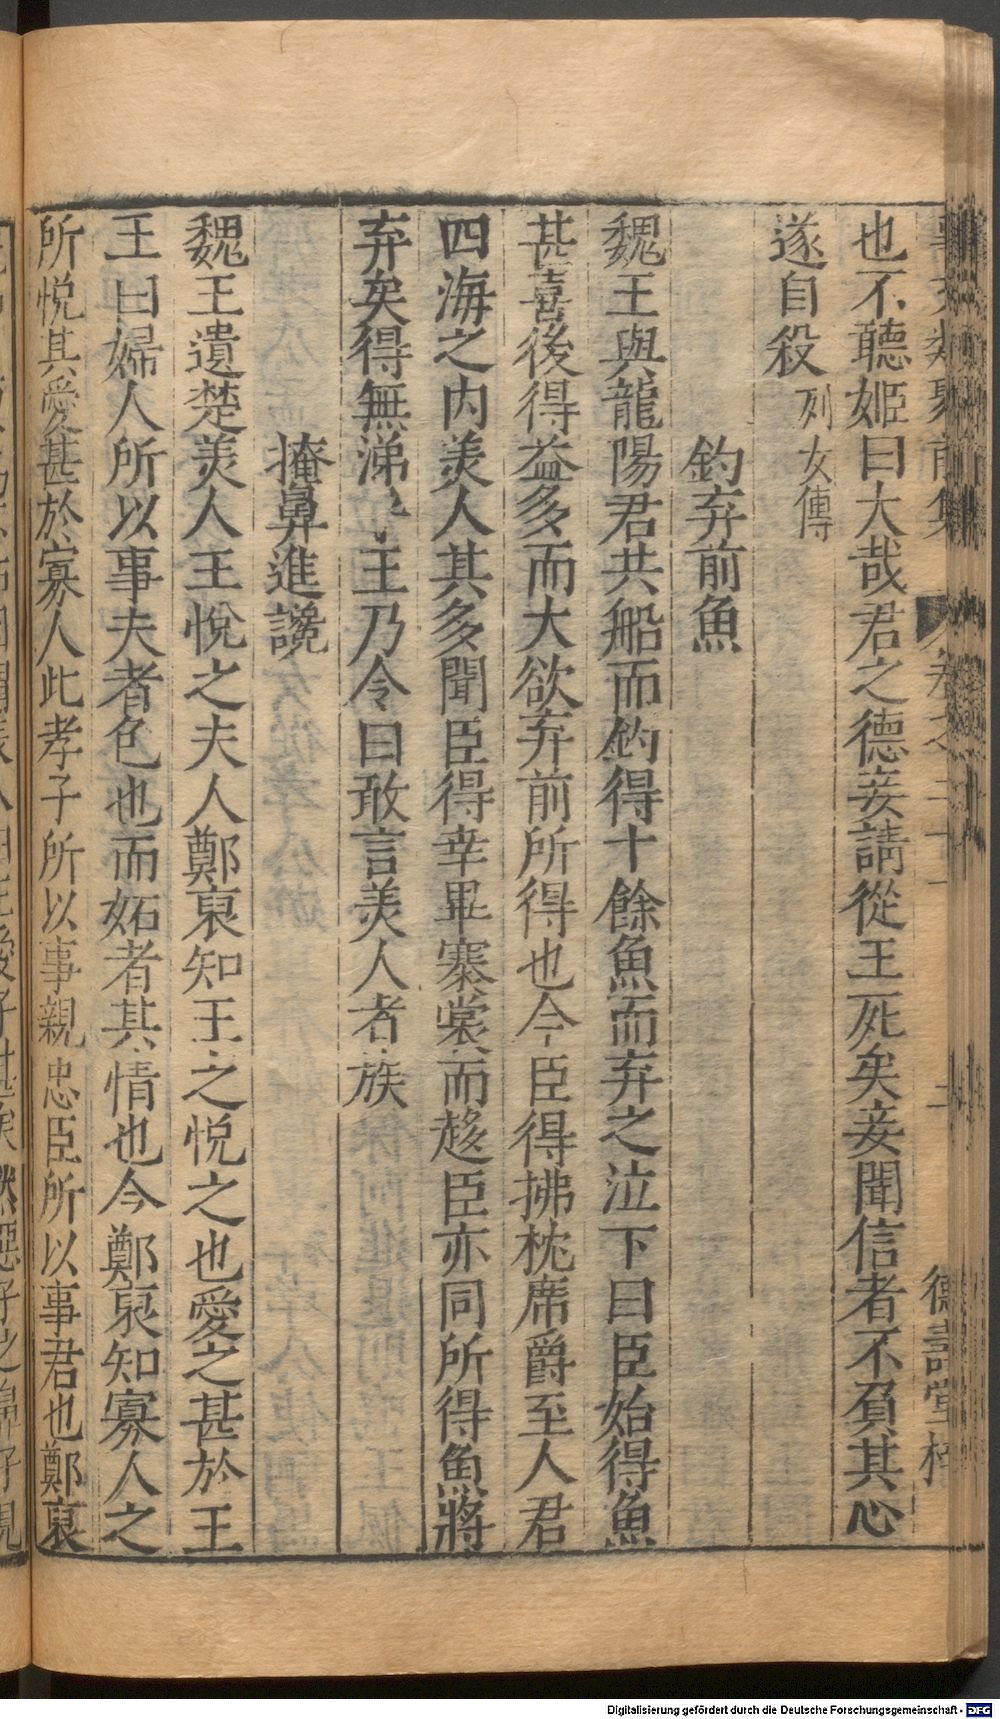 也不聽姬曰大哉君之德妾請從王死矣妾聞信者不負其心
遂自殺列女傳
釣弃前魚
魏王與龍陽君共船而釣得十餘魚而弃之泣下曰臣始得魚
甚喜後得益多而大欲弃前所得也今臣得拂枕席爵至人君
四海之内美人其多聞臣得幸畢褰裳而趍臣亦同所得魚將
弃矣得無涕乀王乃令曰敢言美人者族
掩鼻進讒
魏王遺楚美人王悅之夫人鄭𮖐知王之悅之也愛之甚於王
王曰婦人所以事夫者色也而妬者其情也今鄭𮖐知寡人之
所悅其愛甚於寡人此孝子所以事親忠臣所以事君也鄭𮖐
德壽堂梓
Digitalisierung gefördert durch die Deutsche Forschungsgemeinschaft - DFG